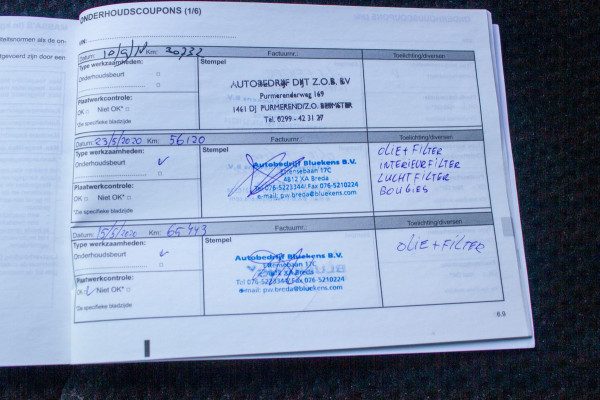 ONDERHOUDSCOUPONS (1/6)
VIN:
Datum: Km: 20732 Factuurnr.: Toelichting/diversen
Type werkzaamheden: Stempel
Onderhoudsbeurt
AUTOBEDRIJF DIJT Z.O.B. BV
Purmerenderweg 169
1461 DJ PURMEREND/Z.O. BEEMSTER
Tel. 0299 - 42 31 27
Plaatwerkcontrole:
OK Niet OK*
*De specifieke bladzijde
Datum: 23/5/2020 Km: 56120 Factuurnr.: Toelichting/diversen
Type werkzaamheden: Stempel
Onderhoudsbeurt
Autobedrijf Bluekens B.V.
4812 XA Breda
Tel 076-5223344/ Fax 076-5210224
e-mail: pw.breda@bluekens.com
OLIE + FILTER
INTERIEURFILTER
LUCHTFILTER
BOUGIES
Plaatwerkcontrole:
OK Niet OK*
*De specifieke bladzijde
Datum: Km: 65443 Factuurnr.: Toelichting/diversen
Type werkzaamheden: Stempel
Onderhoudsbeurt
Autobedrijf Bluekens B.V.
4812 XA Breda
Tel 076-5223344/ Fax 076-5210224
e-mail: pw.breda@bluekens.com
OLIE + FILTER
Plaatwerkcontrole:
OK Niet OK*
*De specifieke bladzijde
6.9